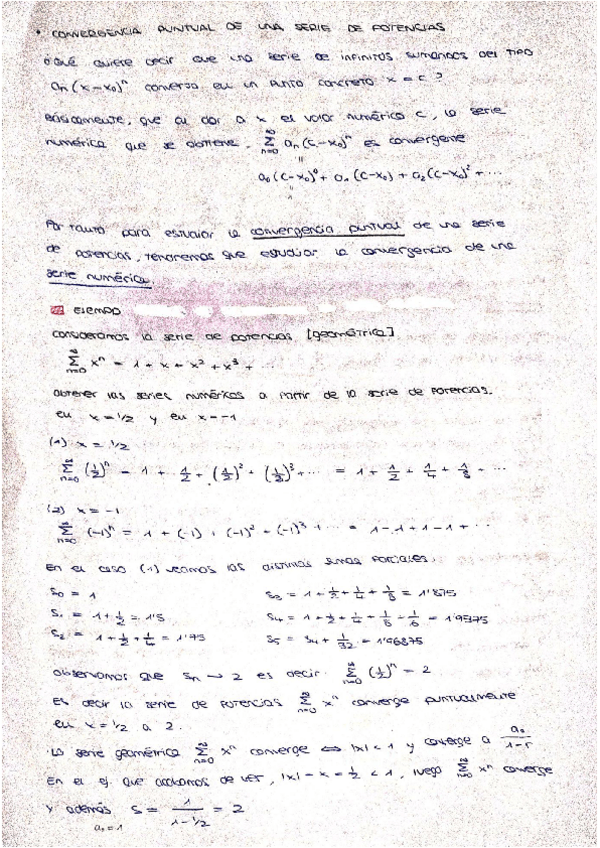 • CONVERGENCIA PUNTUAL DE UNA SERIE DE POTENCIAS
¿Qué quiere decir que una serie de infinitos sumandos del tipo
aₙ(x-x₀)ⁿ converja en un punto concreto x=c?
Básicamente, que al dar a x el valor numérico c, la serie
numérica que se obtiene, ∞Σn=0 aₙ(c-x₀)ⁿ es convergente
"
a₀(c-x₀)⁰ + a₁(c-x₀) + a₂(c-x₀)² + ...
"
1
Por tanto para estudiar la convergencia puntual de una serie
de potencias, tendremos que estudiar la convergencia de una
serie numérica.
EJEMPLO
Consideramos la serie de potencias [geométrica]
∞Σn=0 xⁿ = 1 + x + x² + x³ + ...
obtener las series numéricas a partir de la serie de potencias.
en x=1/2 y en x=-1
(1) x = 1/2
∞Σn=0 (1/2)ⁿ = 1 + 1/2 + (1/2)² + (1/2)³ + ... = 1 + 1/2 + 1/4 + 1/8 + ...
(2) x = -1
∞Σn=0 (-1)ⁿ = 1 + (-1) + (-1)² + (-1)³ + ... = 1-1+1-1+...
En el caso (1) veamos las distintas sumas parciales.
S₀ = 1
S₁ = 1+1/2 = 1'5
S₂ = 1+1/2+1/4 = 1'75
S₃ = 1+1/2+1/4+1/8 = 1'875
S₄ = 1+1/2+1/4+1/8+1/16 = 1'9375
S₅ = S₄ + 1/32 = 1'96875
observamos que Sₙ → 2 es decir ∞Σn=0 (1/2)ⁿ = 2
Es decir la serie de potencias ∞Σn=0 xⁿ converge puntualmente
en x=1/2 a 2.
La serie geométrica ∞Σn=0 xⁿ converge ⇔ |x|<1 y converge a a₀/1-r
En el ej. que acabamos de ver, |x| = x = 1/2 < 1, luego ∞Σn=0 xⁿ converge
y además S = 1/1-1/2 = 2
a₀=1